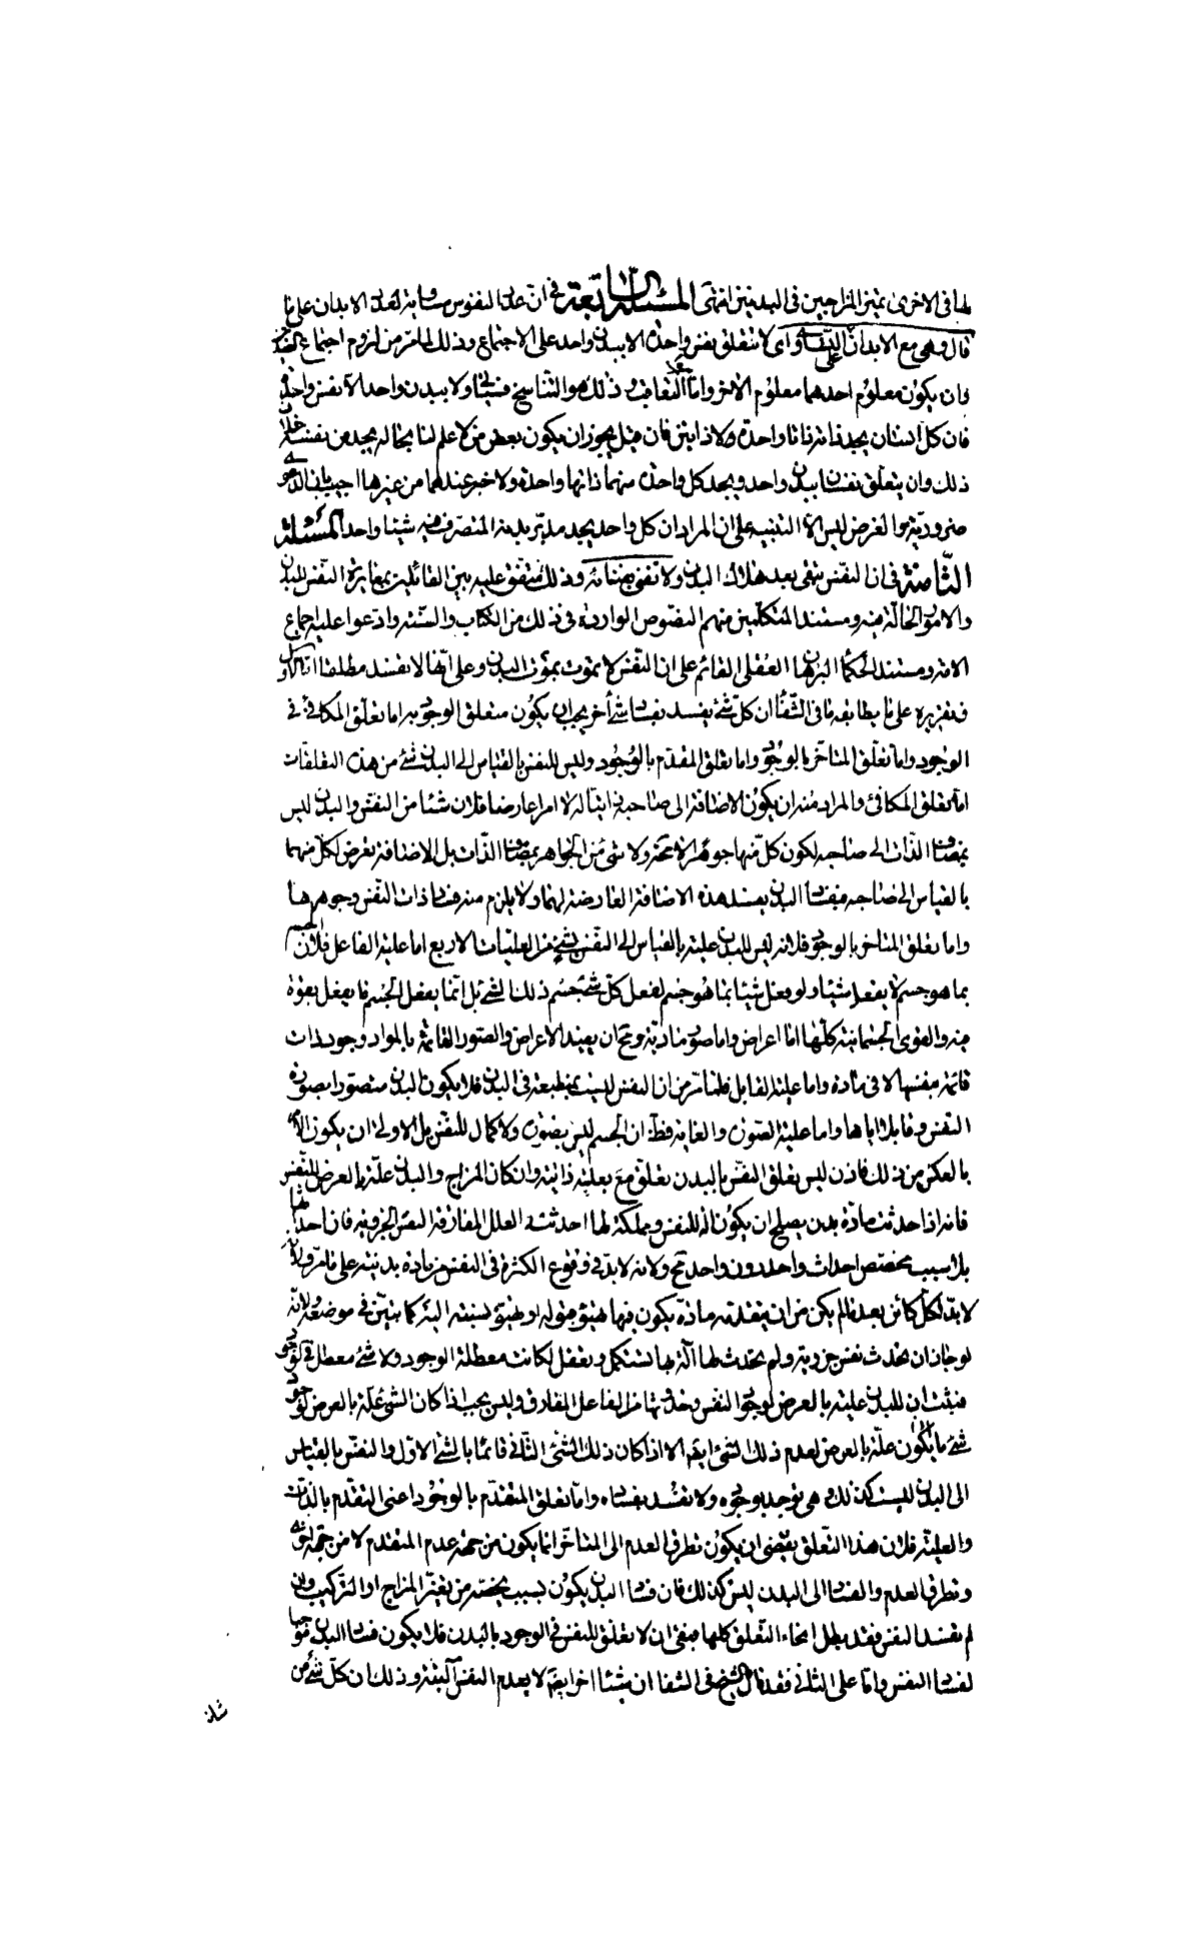 لها فى الاخرى تميز المزاجين فى البدنين انتهى المسئلة السابعة فى ان عدد النفوس مساوية لعدد الابدان على ما
قال وهى مع الابدان على التساوى اى لا تتعلق نفس واحدة الا ببدن واحد على الاجتماع وذلك لما مر من لزوم اجتماع الضدين
وان يكون معلوم احدهما معلوم الاخر واما التعاقب فذلك هو التناسخ فسيجئ ولا ببدن واحد الا نفس واحدة
فان كل انسان يجد ذاته ذاتا واحدة ولا ذاتين فان قيل يجوز ان يكون بعض من لا علم لنا بحاله يجد من نفسه خلاف
ذلك وان يتعلق نفسان ببدن واحد ويجد كل واحدة منهما ذاتها واحدة ولا خبر عندهما من غيرها اجيب بان الدعوى
ضرورية والغرض ليس الا التنبيه على ان المراد ان كل واحد يجد مدبر بدنه المتصرف فيه شيئا واحدا المسئلة
الثامنة فى ان النفس تبقى بعد هلاك البدن ولا تفنى بفنائه وذلك متفق عليه بين القائلين بمغايرة النفس للبدن
والامور الحالة فيه ومستند المتكلمين منهم النصوص الواردة فى ذلك من الكتاب والسنة وادعوا عليه اجماع
الامة ومستند الحكما البرهان العقلى القائم على ان النفس لا يموت بموت البدن وعلى انها لا تفسد مطلقا اما الاول
فتقريره على ما يطابقه ما فى الشفا ان كل شئ يفسد بفساد شئ آخر يجب ان يكون متعلق الوجود به اما تعلق المكافئ فى
الوجود واما تعلق المتاخر بالوجود واما تعلق المقدم بالوجود وليس للنفس بالقياس الى البدن شئ من هذه التعلقات
اما تعلق المكافئ والمراد منه ان يكون الاضافة الى صاحبه ذاتيا له لا امرا عارضا فلان شيئا من النفس والبدن ليس
بمضاف الذات الى صاحبه لكون كل منهما جوهرا لا محة ولا شئ من الجواهر بمضاف الذات بل الاضافة تعرض لكل منهما
بالقياس الى صاحبه ففساد البدن يفسد هذه الاضافة العارضة لهما ولا يلزم منه فساد ذات النفس وجوهرها
واما تعلق المتاخر بالوجود فلانه ليس للبدن علية بالقياس الى النفس بشئ من العليات الاربع اما علية الفاعل فلان الجسم
بما هو جسم لا يفعل شيئا ولو فعل شيئا بما هو جسم لفعل كل شئ جسم ذلك الشئ بل انما يفعل الجسم ما يفعل بقوة
فيه والقوى الجسمانية كلها اما اعراض واما صور مادية ومح ان يفيد الاعراض والصور القائمة بالمواد وجود ذات
قائمة بنفسها لا فى مادة واما علية القابل فلما مر من ان النفس ليست بمنطبعة فى البدن فلا يكون البدن متصورا بصورة
النفس وقابلا اياها واما علية الصورة والغاية فظ ان الجسم ليس بصورة ولا كمال للنفس بل الاولى ان يكون الامر
بالعكس من ذلك فاذن ليس تعلق النفس بالبدن تعلق مع بعلية ذاتية وان كان المزاج والبدن علة بالعرض للنفس
فانه اذا حدثت مادة بدن يصلح ان يكون آلة للنفس ومملكة لها احدثت العلل المفارقة النفس الجزوية فان احداثها
بلا سبب مخصص احداث واحد دون واحد مح ولانه لابد فى وقوع الكثرة فى النفس من مادة بدنية على ما مر ولانه
لابد لكل كائن بعد ما لم يكن من ان يتقدمه مادة يكون فيها تهيؤ قبوله او تهيؤ نسبته اليه كما تبين فى موضعه ولانه
لو جاز ان يحدث نفس جزوية ولم يحدث لها آلة بها تستكمل وتفعل لكانت معطلة الوجود ولا شئ معطل فى الوجود
فثبت ان للبدن علية بالعرض لوجود النفس وحدوثها من الفاعل المفارق وليس يجب اذا كان الشئ علة بالعرض لوجود
شئ ما ان يكون علة بالعرض لعدم ذلك الشئ ايضا الا اذا كان ذلك الشئ الثانى قائما بالشئ الاول والنفس بالقياس
الى البدن ليست كذلك فهى توجد بوجوده ولا تفسد بفساده واما تعلق المتقدم بالوجود اعنى التقدم بالذات
والعلية فلان هذا التعلق يقتضى ان يكون تطرق العدم الى المتاخر انما يكون من جهة عدم المتقدم لا من جهة اخرى
وتطرق العدم والفساد الى البدن ليس كذلك فان فساد البدن يكون بسبب يخصه من تغير المزاج او التركيب وان
لم تفسد النفس فقد بطل انحاء التعلق كلها فبقى ان لا تعلق للنفس فى الوجود بالبدن فلا يكون فساد البدن موجبا
لفساد النفس واما على الثانى فقد قال الشيخ فى الشفا ان شيئا اخر ايضا لا يعدم النفس البتة وذلك ان كل شئ من
شانه